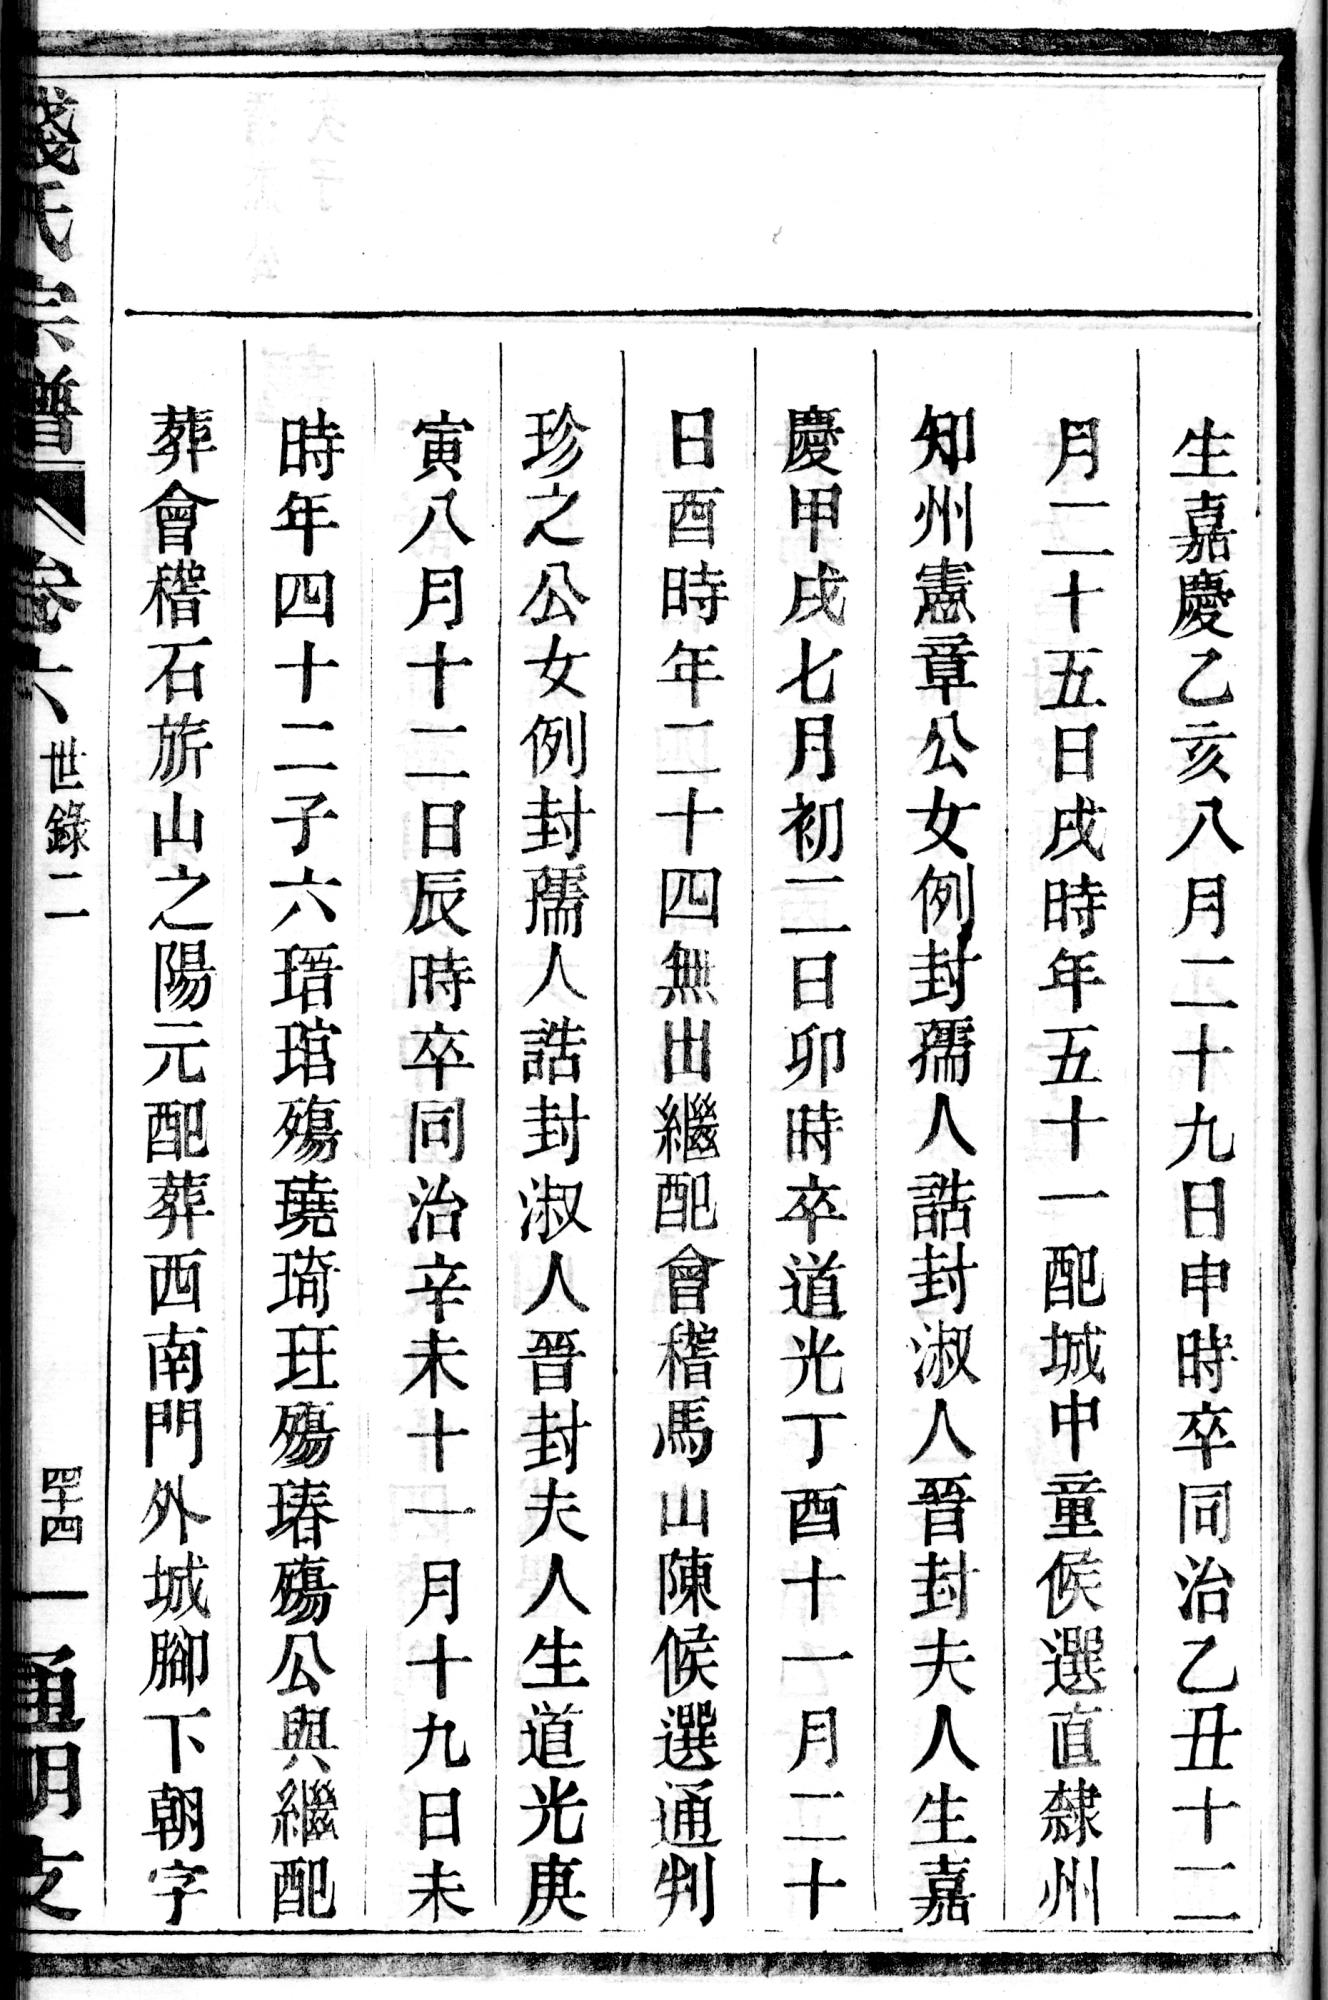 生嘉慶乙亥八月二十九日申時卒同治乙丑十二
月二十五日戌時年五十一配城中童候選直隸州
知州憲章公女例封孺人誥封淑人晉封夫人生嘉
慶甲戌七月初二日卯時卒道光丁酉十一月二十
日酉時年二十四無出繼配會稽馬山陳候選通判
珍之公女例封孺人誥封淑人晉封夫人生道光庚
寅八月十二日辰時卒同治辛未十一月十九日未
時年四十二子六琘琯殤璄琦玨殤瑃殤公與繼配
葬會稽石旂山之陽元配葬西南門外城腳下朝字
錢氏宗譜 卷六 世錄二 四十四 一 通明支